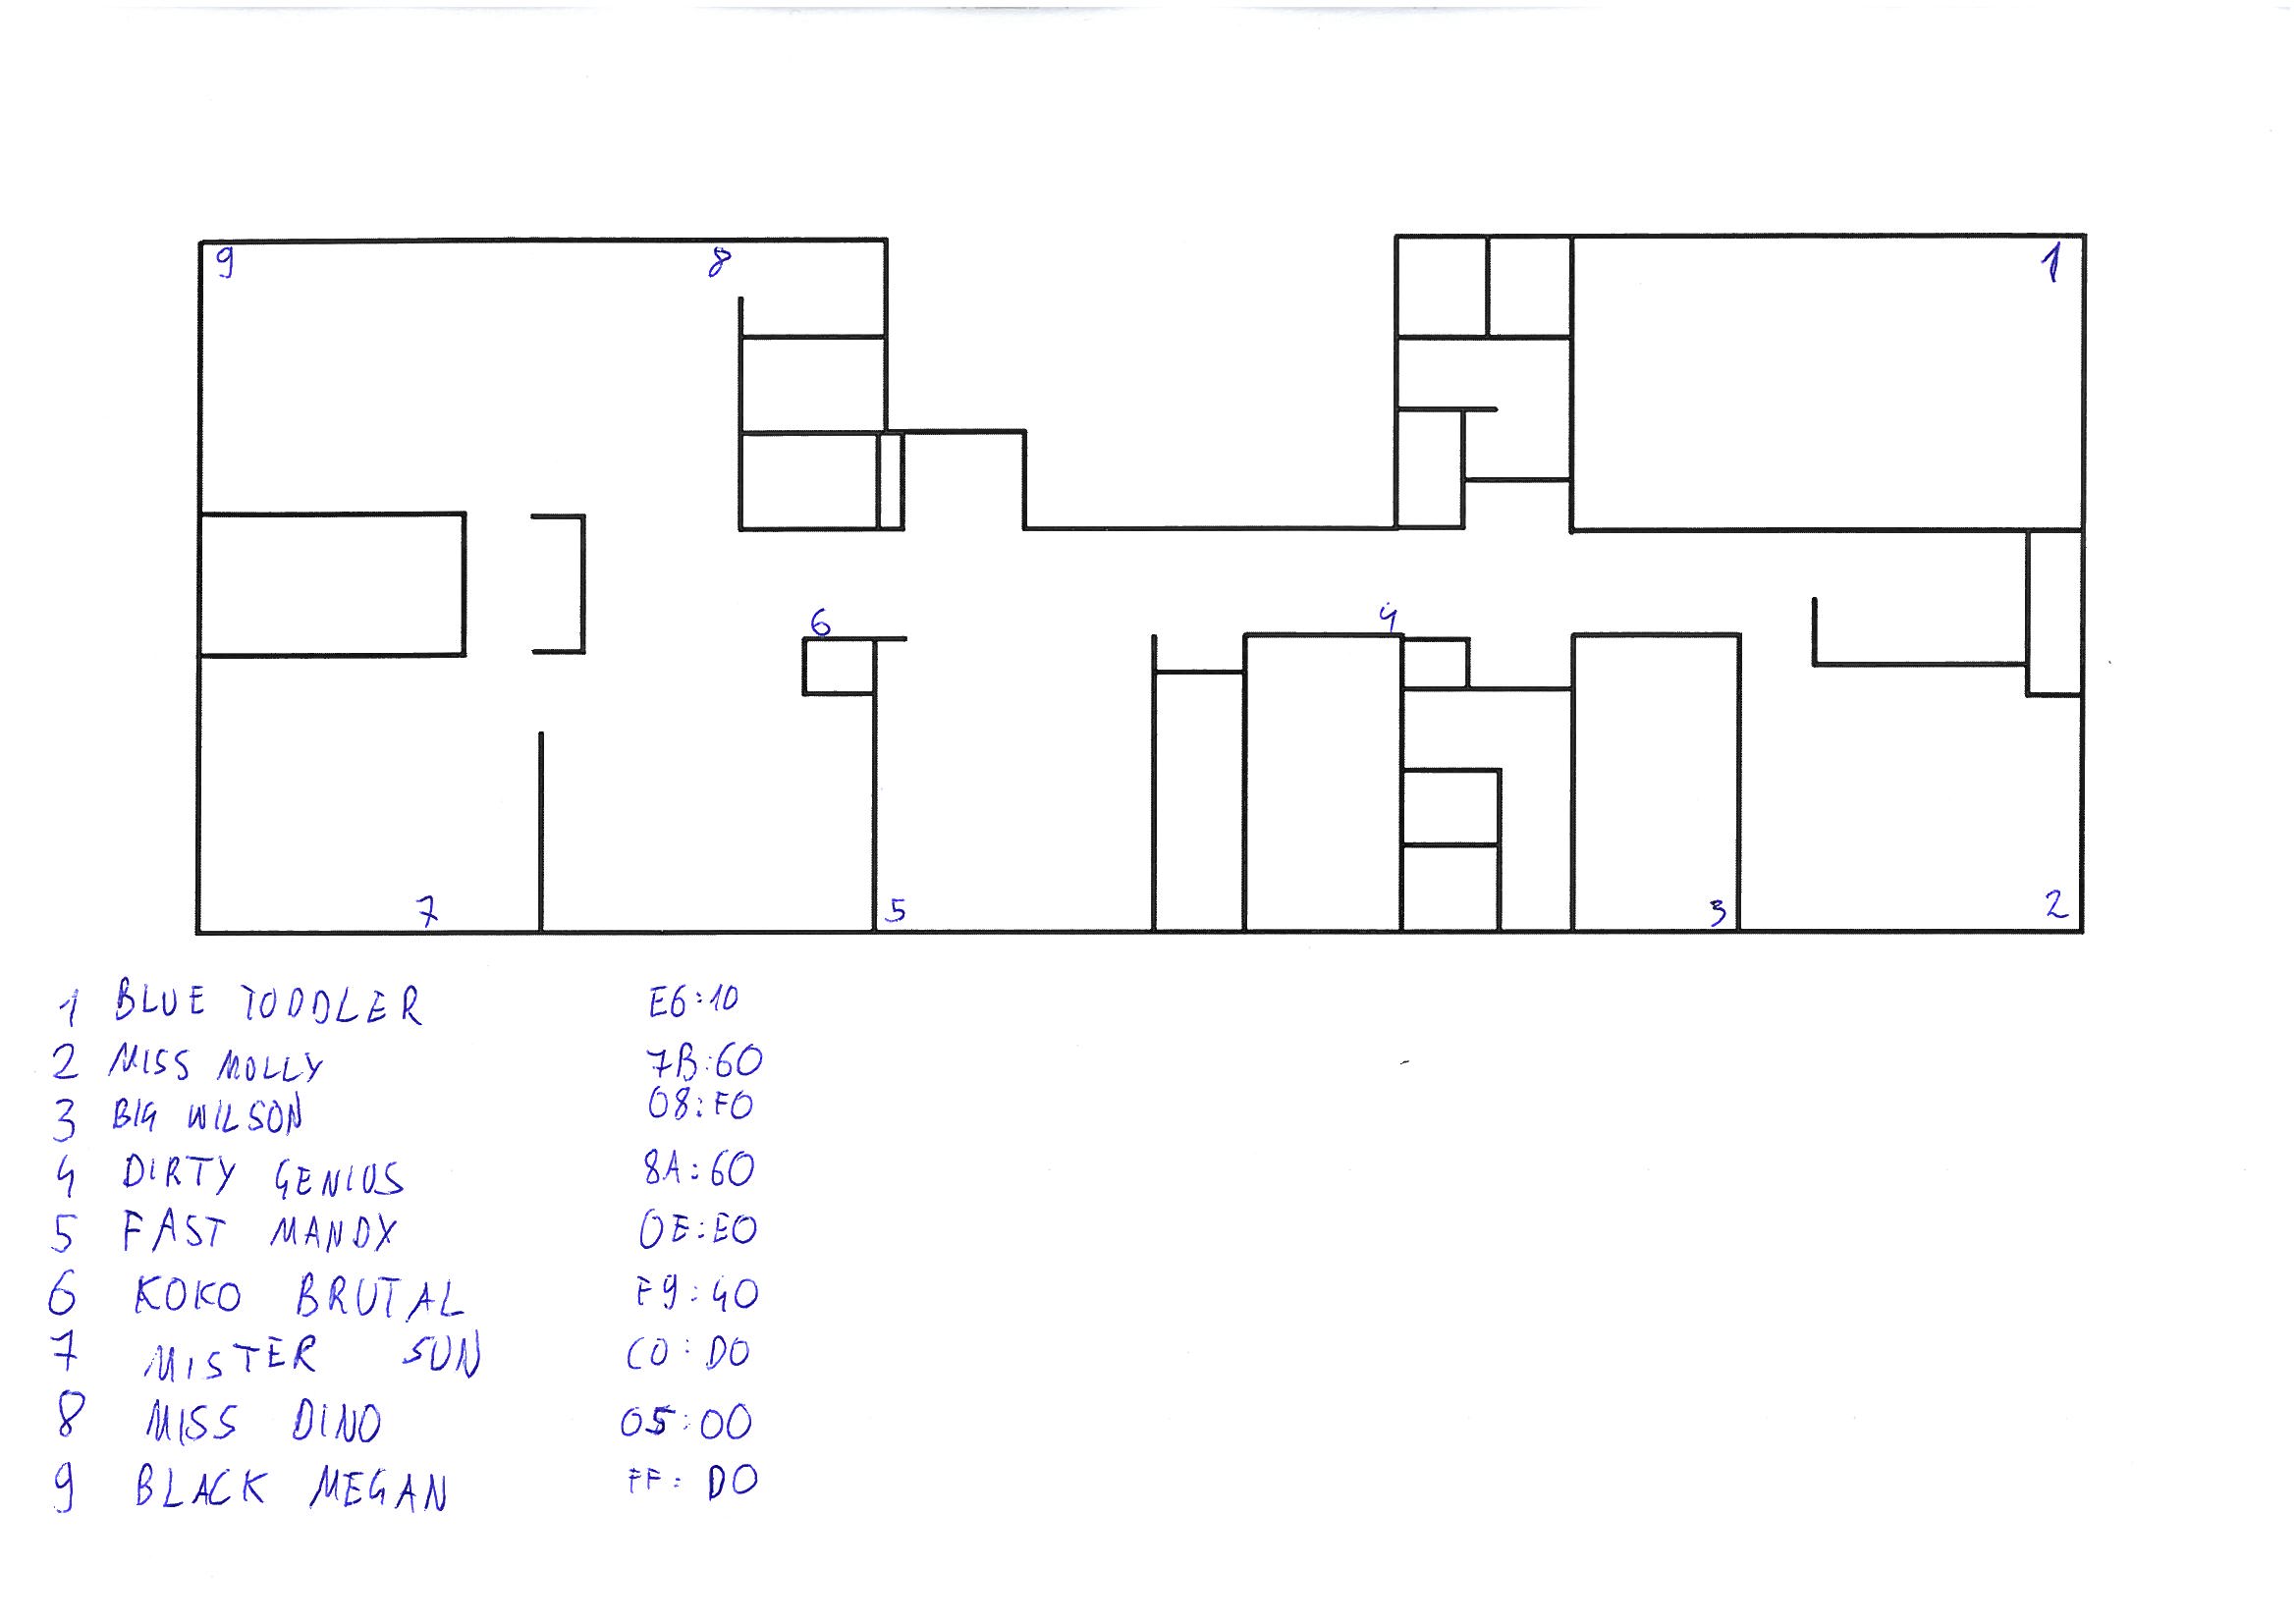 9 8 1
6 4
7 5 3 2
1 BLUE TODDLER E6:10
2 MISS MOLLY 7B:60
3 BIG WILSON 08:F0
4 DIRTY GENIUS 8A:60
5 FAST MANDY 0E:E0
6 KOKO BRUTAL F9:40
7 MISTER SUN C0:D0
8 MISS DINO 05:00
9 BLACK MEGAN FF:D0